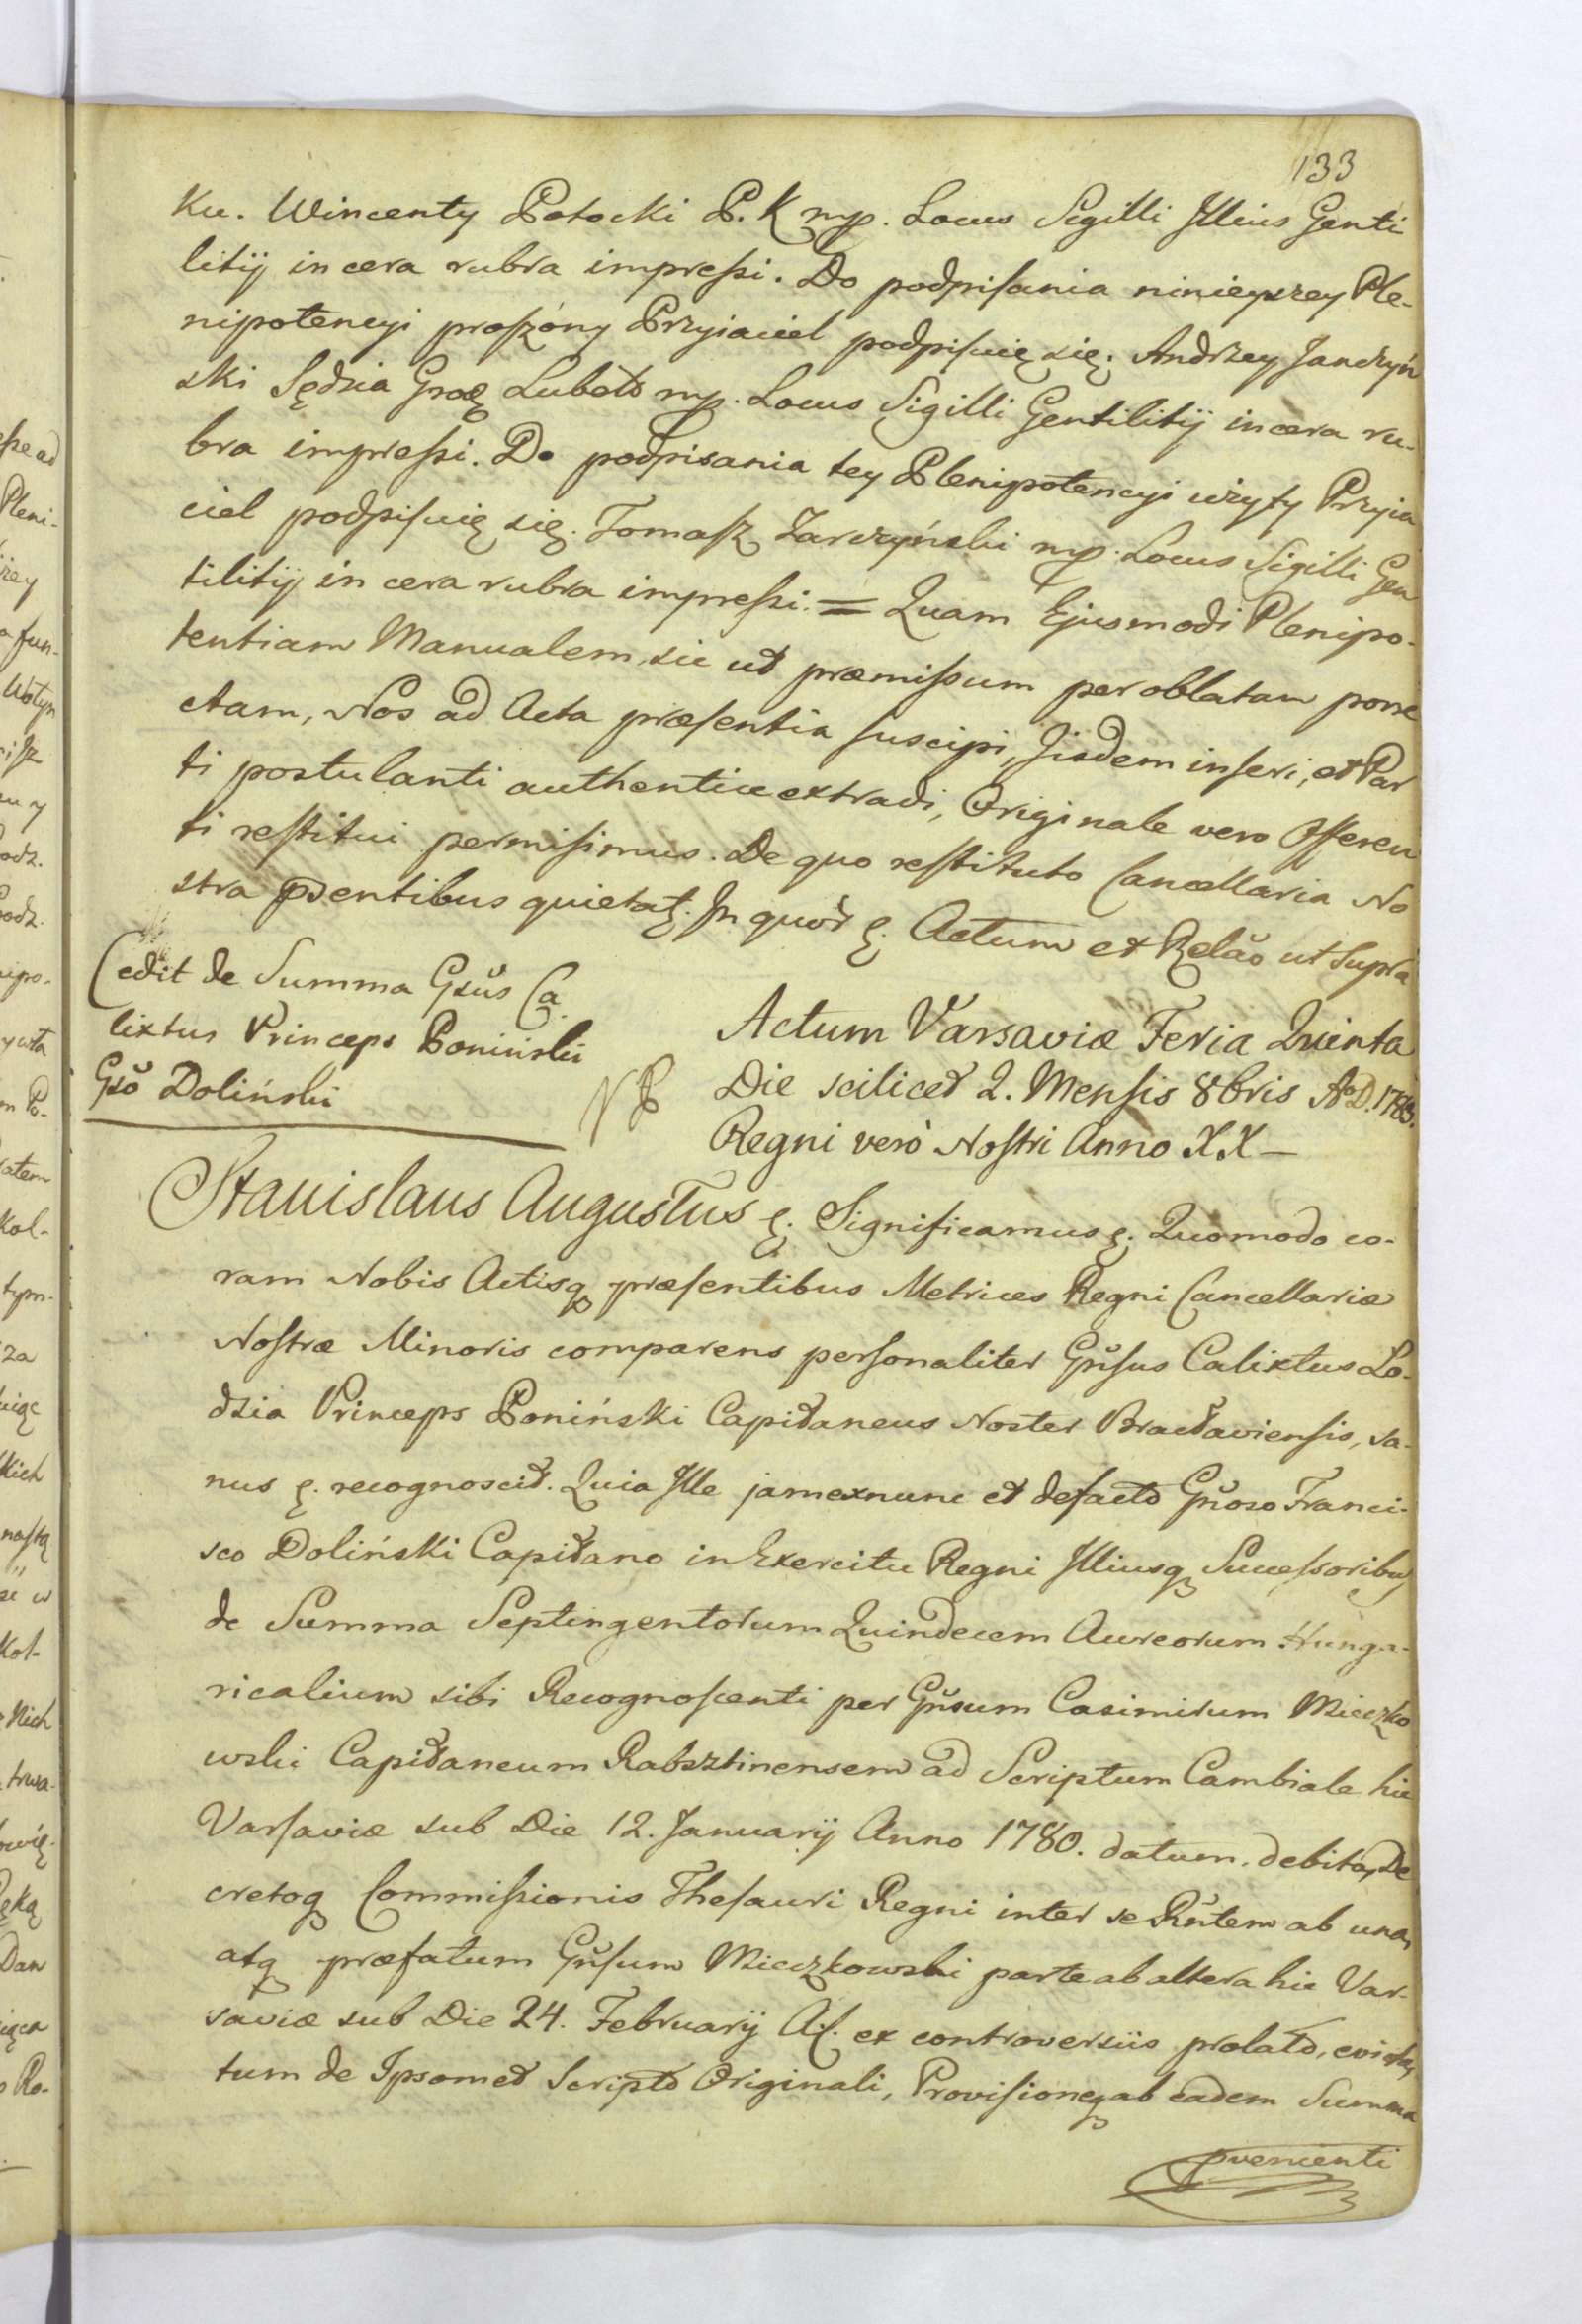 133
Ku. Wincenty Potocki P. K mp. Locus Sigilli Illius Genti
litij in cera rubra impreſsi. Do podpiſania ninieyszey Ple-
nipotencyi proſzony Przyiaciel podpiſuię się. Andrzey Janczyń
ski Sędzia Grodz Lubel mp. Locus Sigilli Gentilitij in cera ru-
bra impreſsi. Do podpisania tey Plenipotencyi użyty Przyia
ciel podpiſuię się. Tomaſz Zarczyński mp. Locus Sigilli Gen
tilitij in cera rubra impreſsi. = Quam Ejusmodi Plenipo-
tentiam Manualem, sic ut præmiſsum per oblatam porre
ctam, Nos ad Acta præſentia ſuscipi, Iisdem inſeri, et Par
ti postulanti authentice extradi, Originale vero Offeren
ti reſtitui permiſimus. De quo reſtituto Cancellaria No
stra pdentibus quietat. In quor. &. Actum et Relão ut ſupra
Cedit de Summa Gsŭs Ca
lixtus Princeps Poniński
Gsŏ Doliński
NB
Actum Varsaviæ Feria Quinta
Die scilicet 2. Menſis 8bris AoD. 1783.
Regni verò Noſtri Anno XX –
Stanislaus Augustus &. Significamus &. Quomodo co-
ram Nobis Actisq præſentibus Metrices Regni Cancellariæ
Noſtræ Minoris comparens perſonaliter Gnŭſus Calixtus Lo-
dzia Princeps Poniński Capitaneus Noster Bracłavienſis, sa-
nus &. recognoscit. Quia Ille jam ex nunc et defacto Gnŭoso Franci-
sco Doliński Capitano in Exercitu Regni Illiusq Succeſsoribus
de Summa Septingentorum Quindecem Aureorum Hunga-
ricalium sibi Recognoſcenti per Gnŭsum Casimirum Mieczko
wski Capitaneum Rabsztinensem ad Scriptum Cambiale hic
Varſaviæ sub Die 12. Januarij Anno 1780. datum, debita, De
cretoq Commiſsionis Theſauri Regni inter se Rntem ab una,
atq præfatum Gnŭſum Mieczkowski parte ab altera hic Var-
saviæ sub Die 24. Februarij A. c. ex controversiis prolato, evicta,
tum de Ipsomet Scripto Originali, Proviſioneq ab eadem Summa
pvenienti